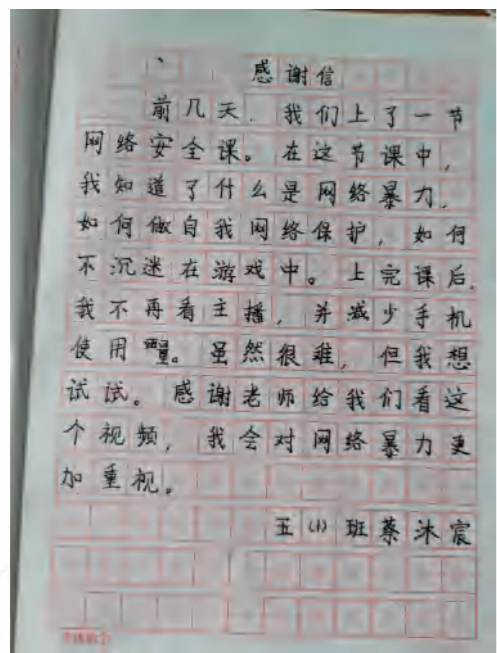 感谢信
前几天，我们上了一节
网络安全课。在这节课中，
我知道了什么是网络暴力，
如何做自我网络保护，如何
不沉迷在游戏中。上完课后，
我不再看主播，并减少手机
使用量。虽然很难，但我想
试试。感谢老师给我们看这
个视频，我会对网络暴力更
加重视。
五(1)班蔡沐宸